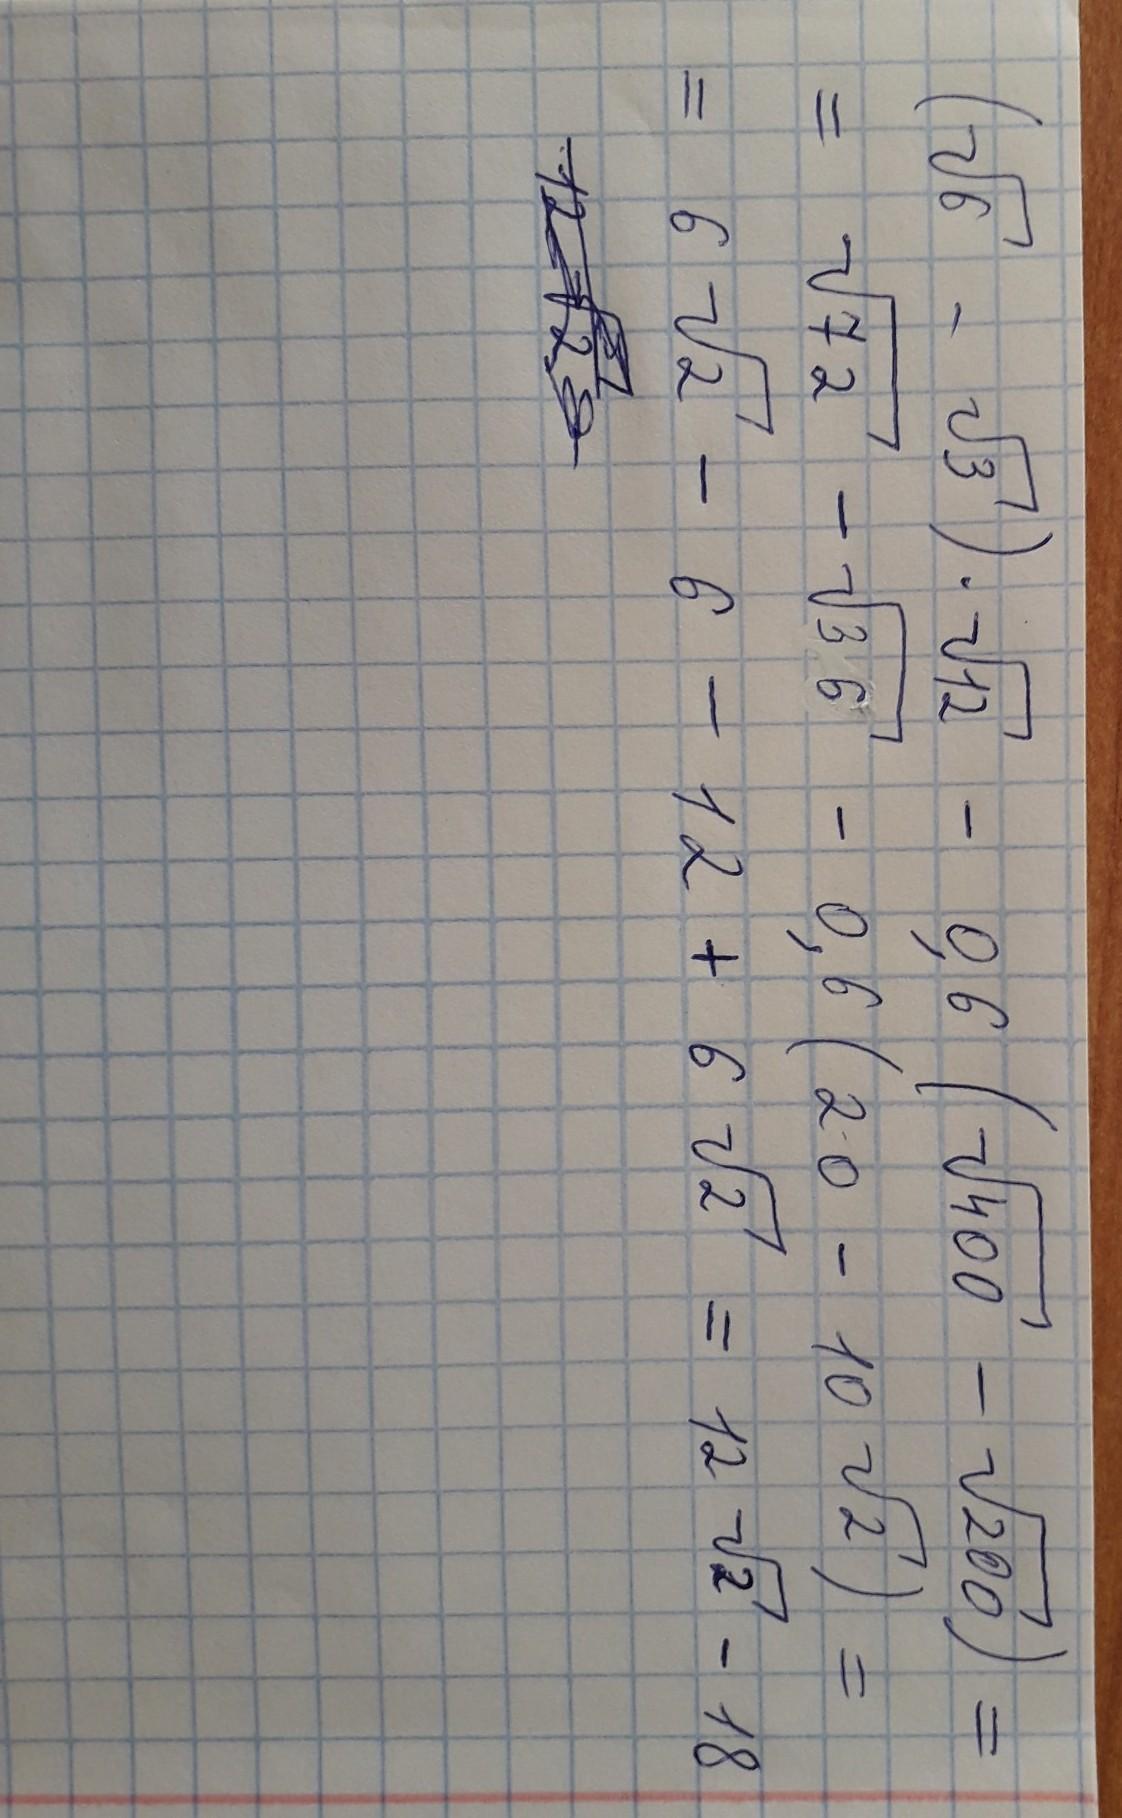 (√6 - √3) · √12 - 0,6 (√400 - √200) =
= √72 - √36 - 0,6 (20 - 10√2) =
= 6√2 - 6 - 12 + 6√2 = 12√2 - 18